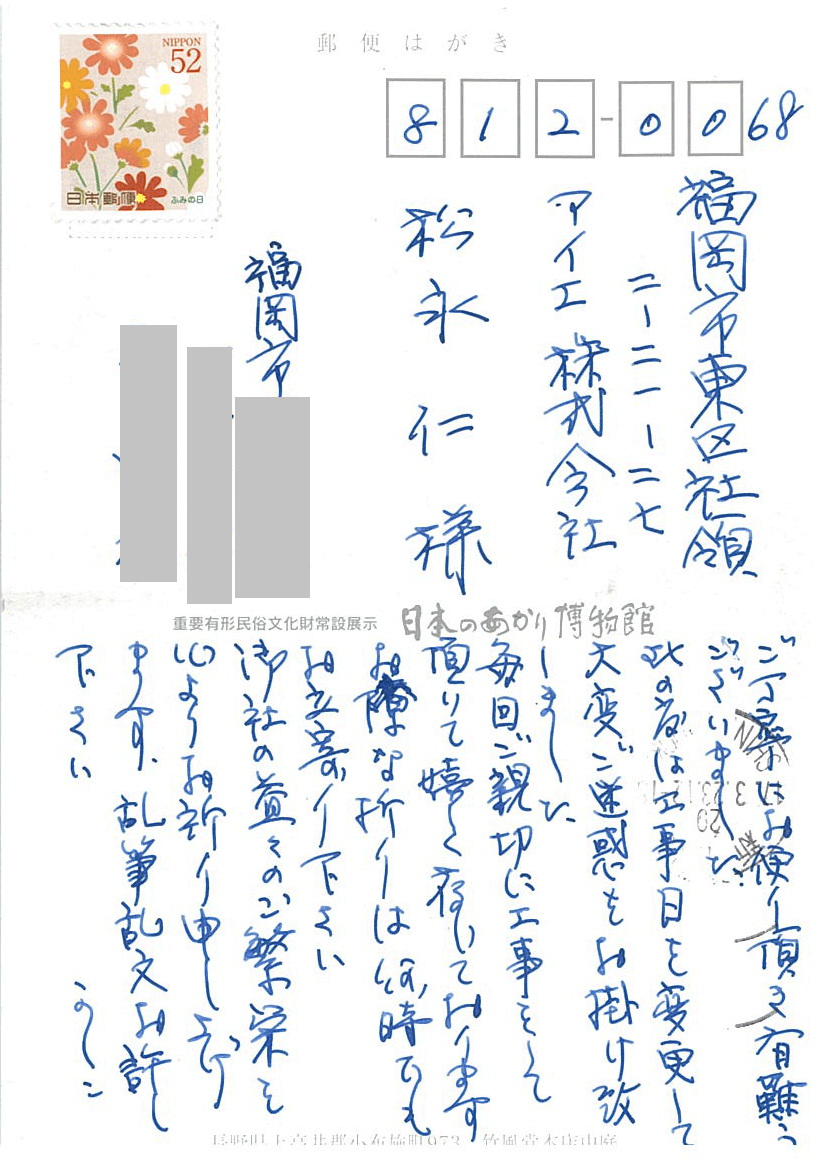 郵便はがき
NIPPON
52
日本郵便
ふみの日
812-0068
福岡市東区社領
二ー二一ー二七
アイエ株式会社
松永仁様
福岡市
重要有形民俗文化財常設展示 日本のあかり博物館
ご丁寧なお便り頂き有難う
ございました
此の度は工事日を変更して
大変ご迷惑をお掛け致
しました
毎回ご親切に工事をして
頂いて嬉しく存じております
お暇な折りは何時でも
お立寄り下さい
御社の益々のご繁栄を
心よりお祈り申し上げ
ます、乱筆乱文お許し
下さい かしこ
長野県上高井郡小布施町973 竹風堂本店中庭